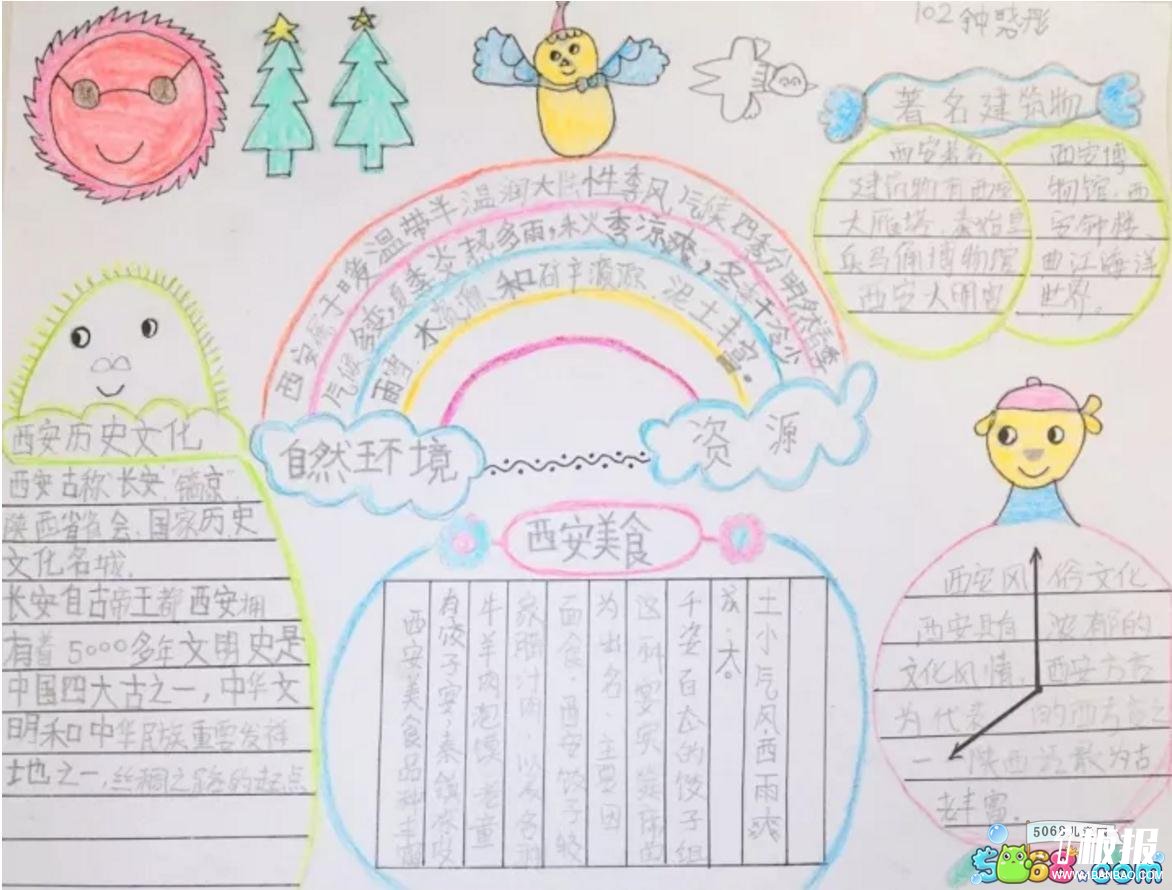 102 钟晓彤
著名建筑物
西安著名
建筑物有西安
大雁塔、秦始皇
兵马俑博物馆
西安大明宫
西安博
物馆、西
安钟楼、
曲江海洋
世界。
西安属于暖温带半温润大陆性季风气候四季分明
气候 夏季炎热多雨,秋季凉爽,冬季干冷少
雨雪.水资源、和矿产资源.泥土丰富.
自然环境
资源
西安历史文化
西安古称"长安""镐京"
陕西省省会、国家历史
文化名城.
长安自古帝王都西安拥
有着5000多年文明史是
中国四大古之一,中华文
明和中华民族重要发祥
地之一,丝绸之路的起点
西安美食
西安美食品种丰富
有饺子宴,秦镇凉皮
牛羊肉泡馍 老童
家腊汁肉.以及各种
面食.西安饺子
为出名.主要因
这种宴实
千姿百态的饺子组
成.大。
土小气风.西雨爽
西安风俗文化
西安具有浓郁的
文化风情.西安方言
为代表的西方言之
一 陕西话最为古
老丰富.
5068儿童网
5068.com
极报
WWW.1BANBAO.COM